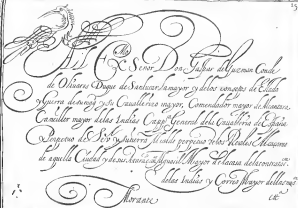 Al Ex.mo
Señor Don Gaspar de Guzman Conde
de Olivares Duque de Sanlucar la mayor y de los consejos de Estado
y Guerra de su mag.d y su Cavallerizo mayor, Comendador mayor de Alcantara
Canciller mayor de las Indias Capp.n General de la Cavalleria de España
Perpetuo de Alcayde perpetuo de los Reales Alcaçares
de aquella Ciudad y Alguacil Mayor de la casa de la contratacion
de las Indias y Correo Mayor della
Morante